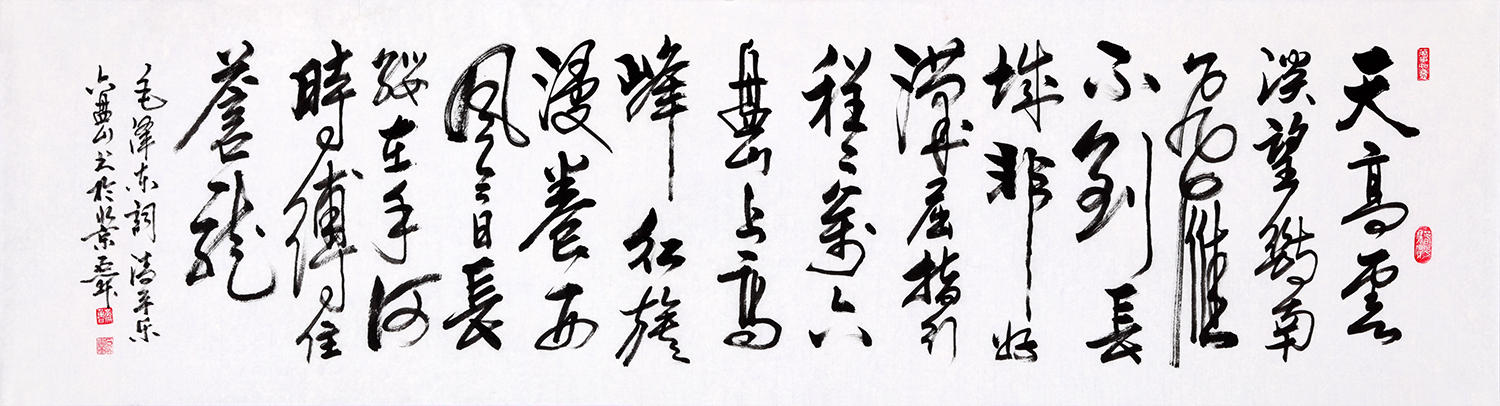 天高雲
淡望斷南
飛雁
不到長
城非好
漢屈指行
程二萬六
盘山上高
峰红旗
漫卷西
風今日長
纓在手何
時縛住
蒼龍
毛澤东詞清平乐
六盘山书於北京